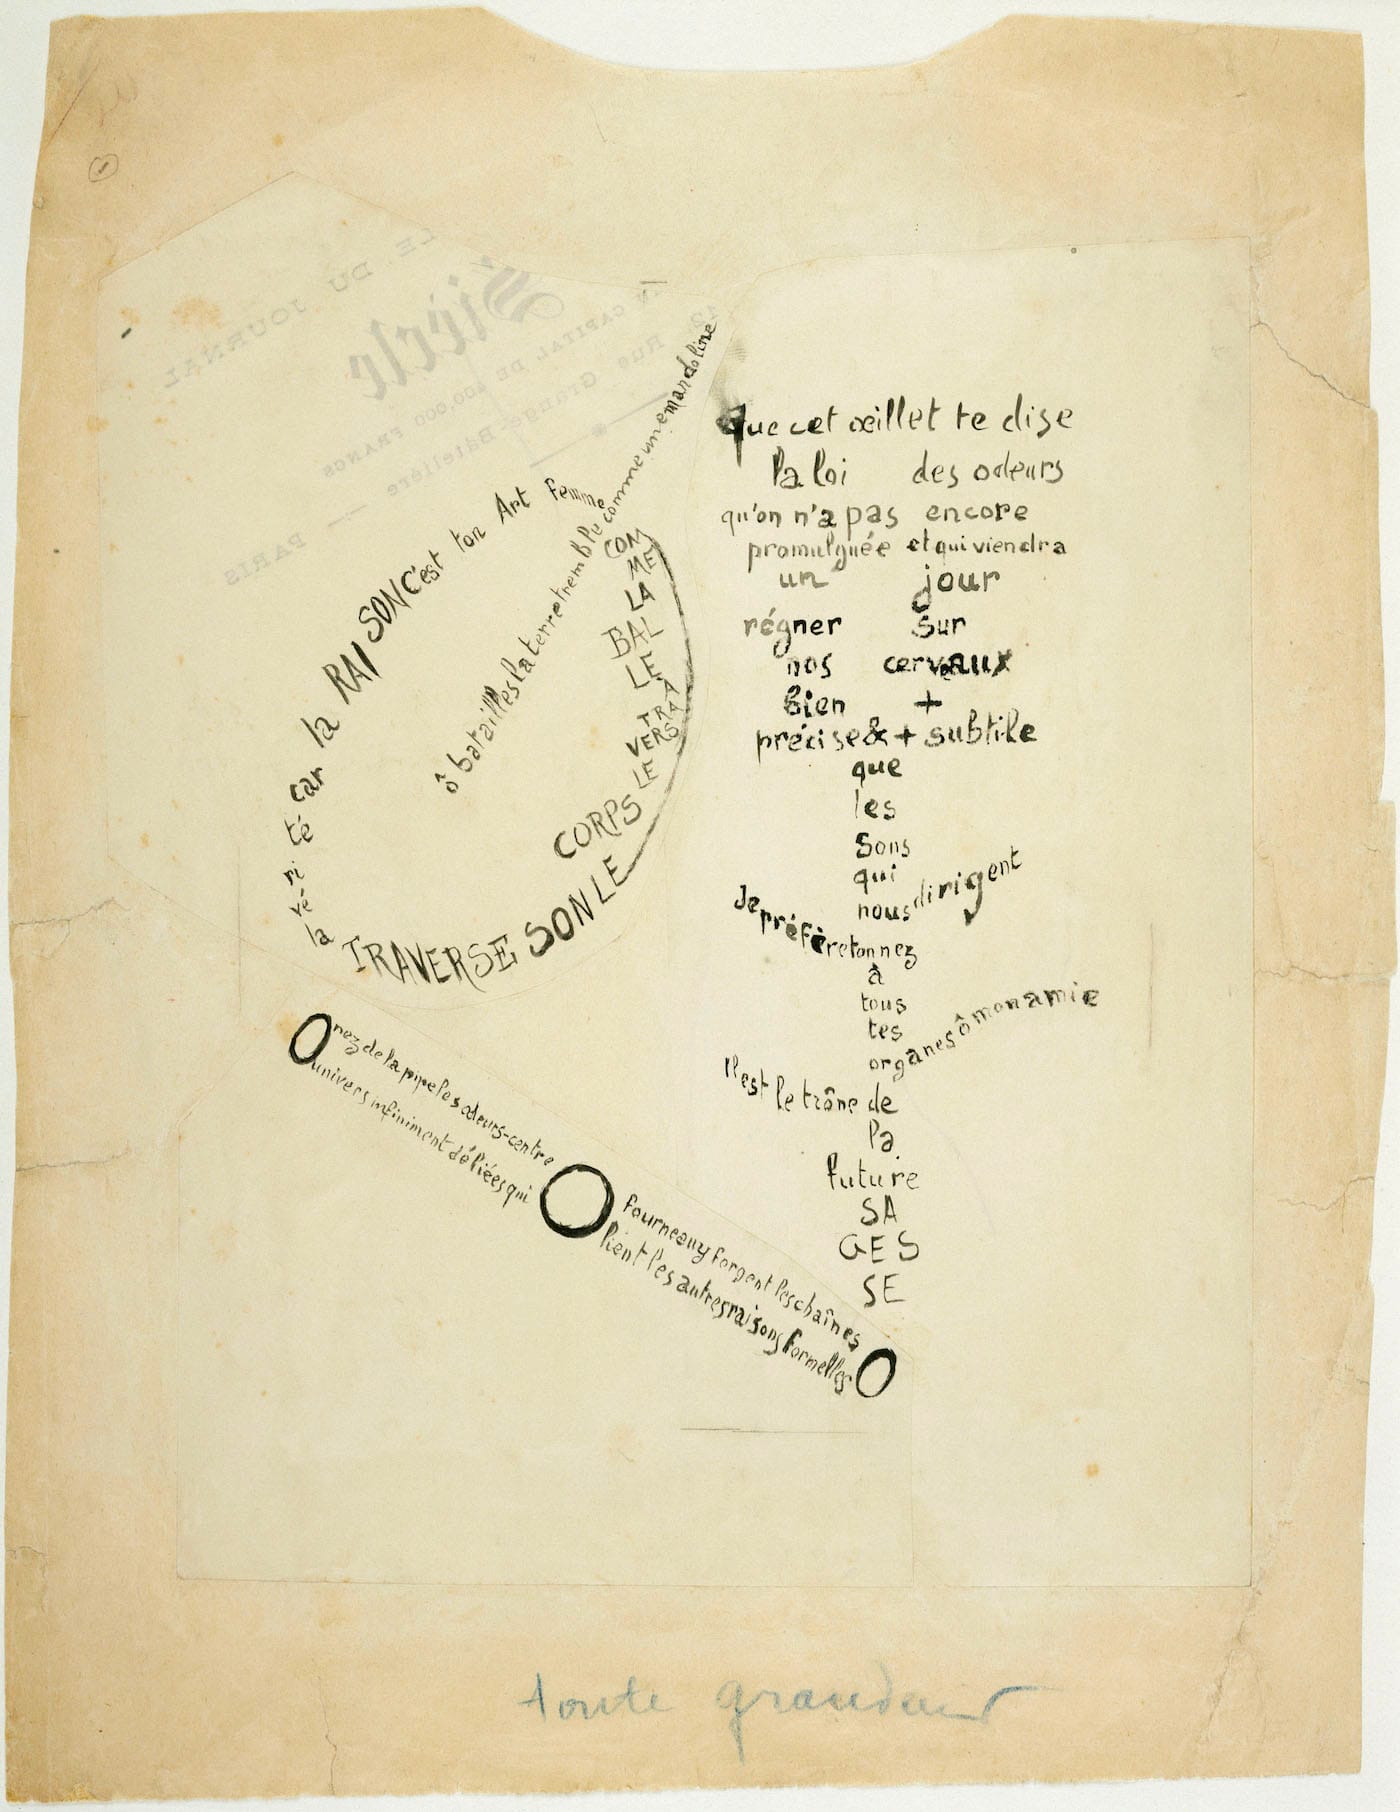 LE DU JOURNAL
Siècle
AN CAPITAL DE 400,000 FRANCS
Rue Grange-Batelière
PARIS
ô batailles la terre tremble comme une mandoline
COM
ME
LA
BAL
LE
À
TRA
VERS
LE
CORPS
LE
SON
TRAVERSE
la
vé
ri
té
car
la
RAI
SON
C'est
ton
Art
Femme
que cet œillet te dise
la loi des odeurs
qu'on n'a pas encore
promulguée et qui viendra
un jour
régner sur
nos cerveaux
bien +
précise & + subtile
que
les
sons
qui
nous dirigent
Je préfère ton nez
à
tous
tes
organes ô mon amie
Il est le trône de
la
future
SA
GES
SE
O nez de la pipe les odeurs-centre
O fourneau y forgent les chaînes
univers infiniment déliées qui
lient les autres raisons formelles O
toute grandeur